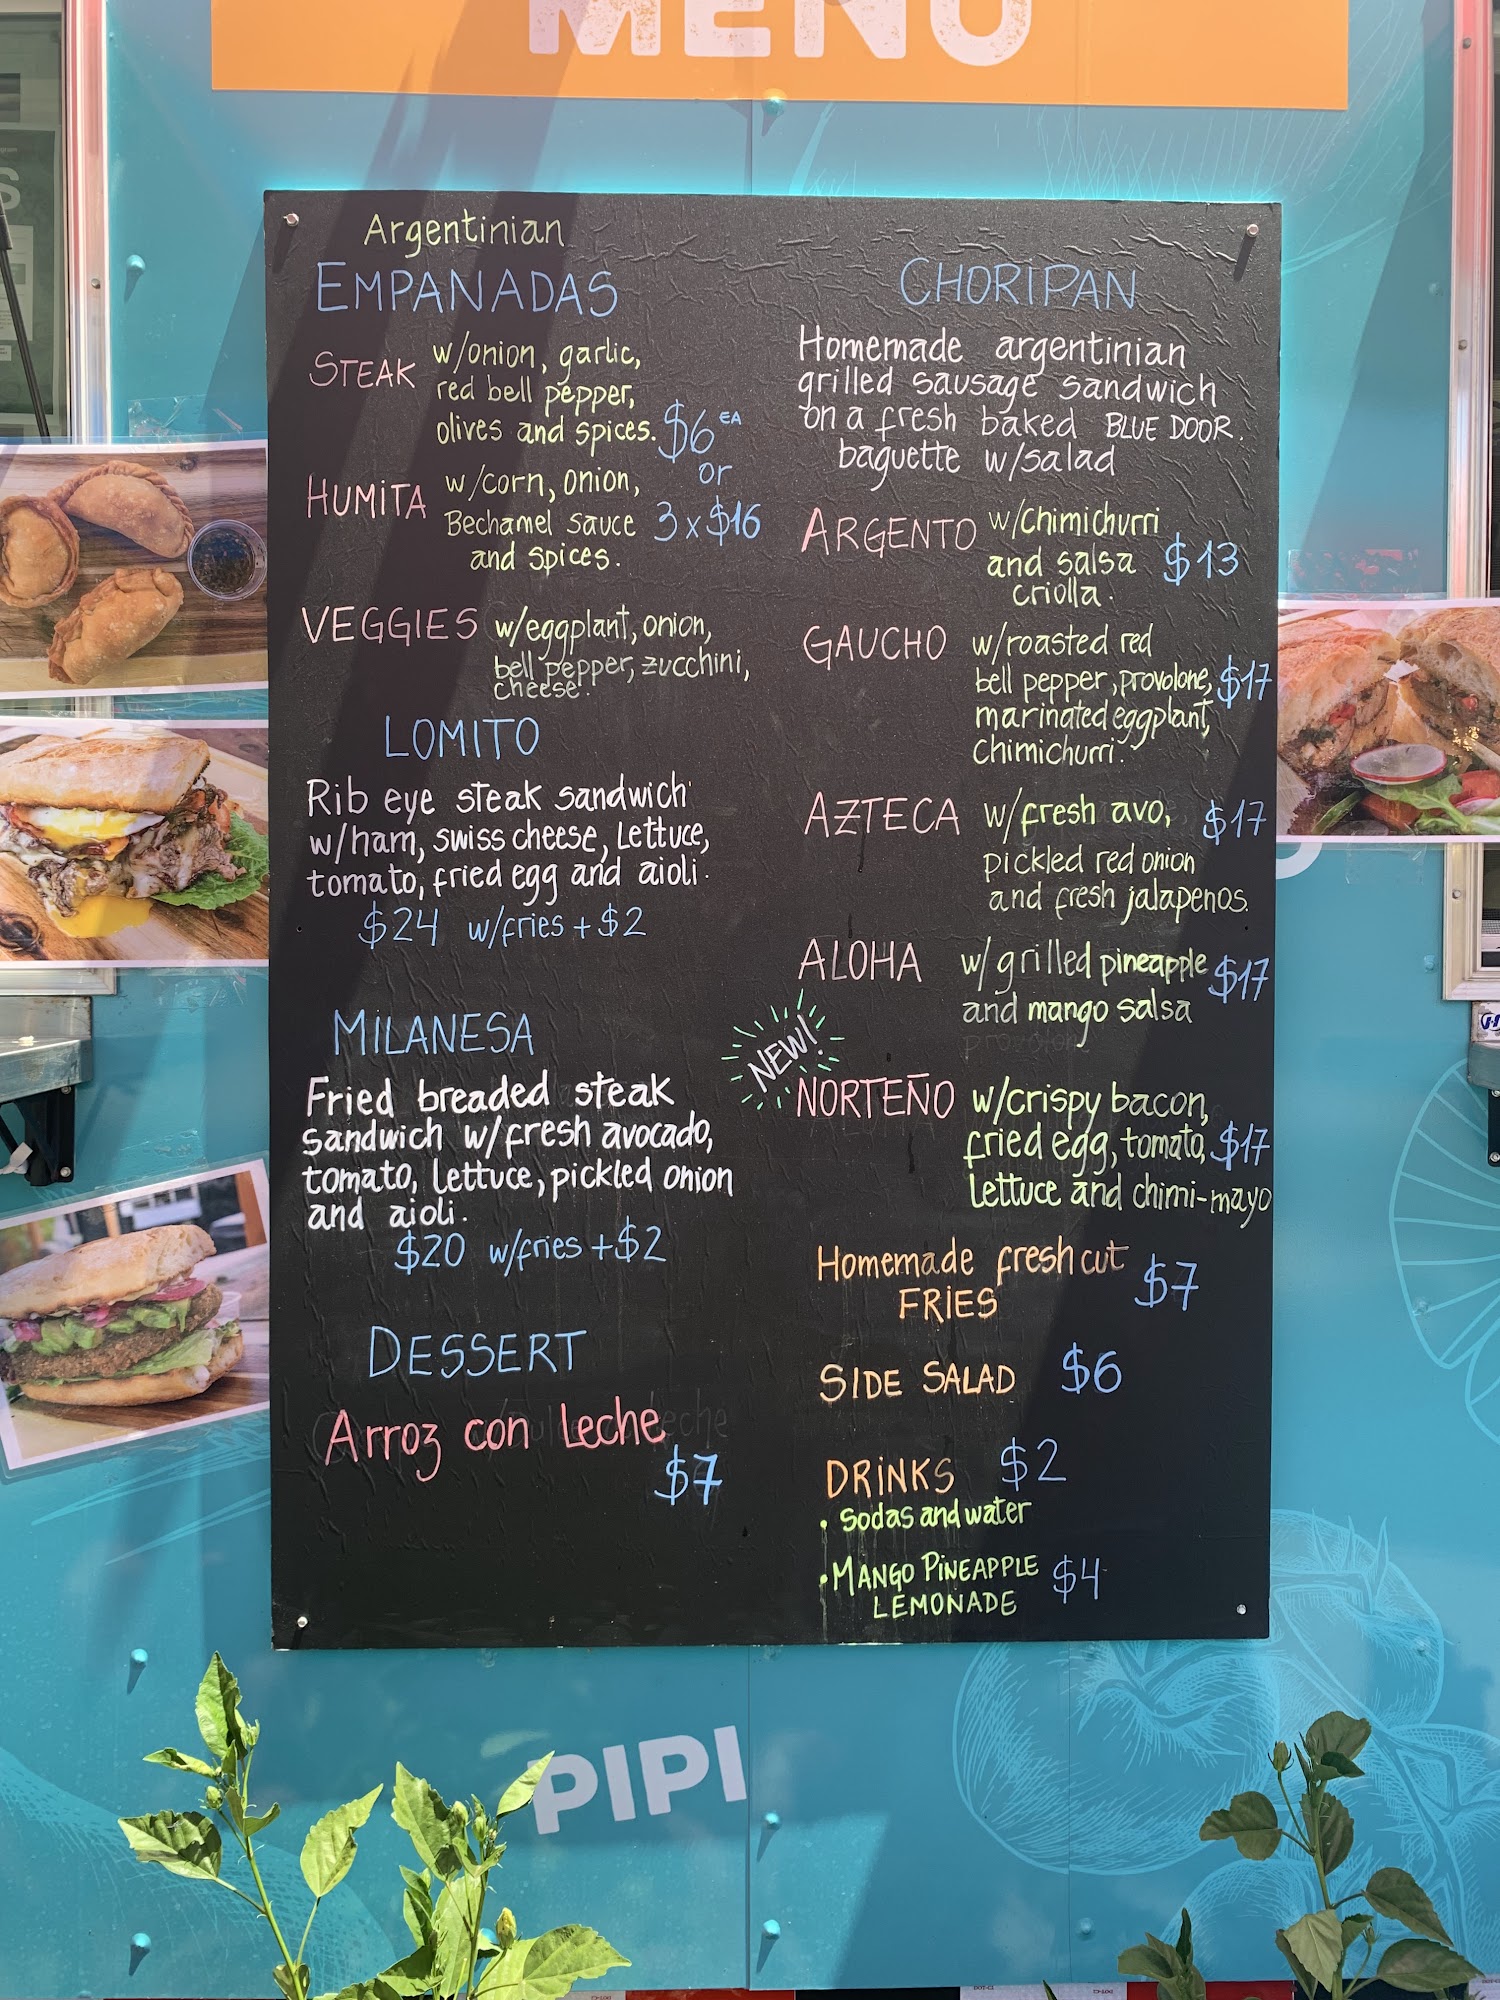 MENU
Argentinian
EMPANADAS
STEAK w/onion, garlic,
red bell pepper,
olives and spices. $6 EA
or
HUMITA w/corn, onion,
Bechamel sauce 3 x $16
and spices.
VEGGIES w/eggplant, onion,
bell pepper, zucchini,
cheese.
LOMITO
Rib eye steak sandwich
w/ham, swiss cheese, Lettuce,
tomato, fried egg and aioli.
$24 w/fries + $2
MILANESA
Fried breaded steak
sandwich w/fresh avocado,
tomato, lettuce, pickled onion
and aioli.
$20 w/fries + $2
DESSERT
Arroz con Leche
$7
CHORIPAN
Homemade argentinian
grilled sausage sandwich
on a fresh baked BLUE DOOR.
baguette w/salad
ARGENTO w/chimichurri
and salsa $13
criolla.
GAUCHO w/roasted red
bell pepper, provolone, $17
marinated eggplant,
chimichurri.
AZTECA w/fresh avo, $17
pickled red onion
and fresh jalapenos.
ALOHA w/grilled pineapple $17
and mango salsa
provolone
NEW!
NORTEÑO w/crispy bacon,
fried egg, tomato, $17
Lettuce and chimi-mayo
Homemade fresh cut $7
FRIES
SIDE SALAD $6
DRINKS $2
• Sodas and water
• MANGO PINEAPPLE $4
LEMONADE
PIPI